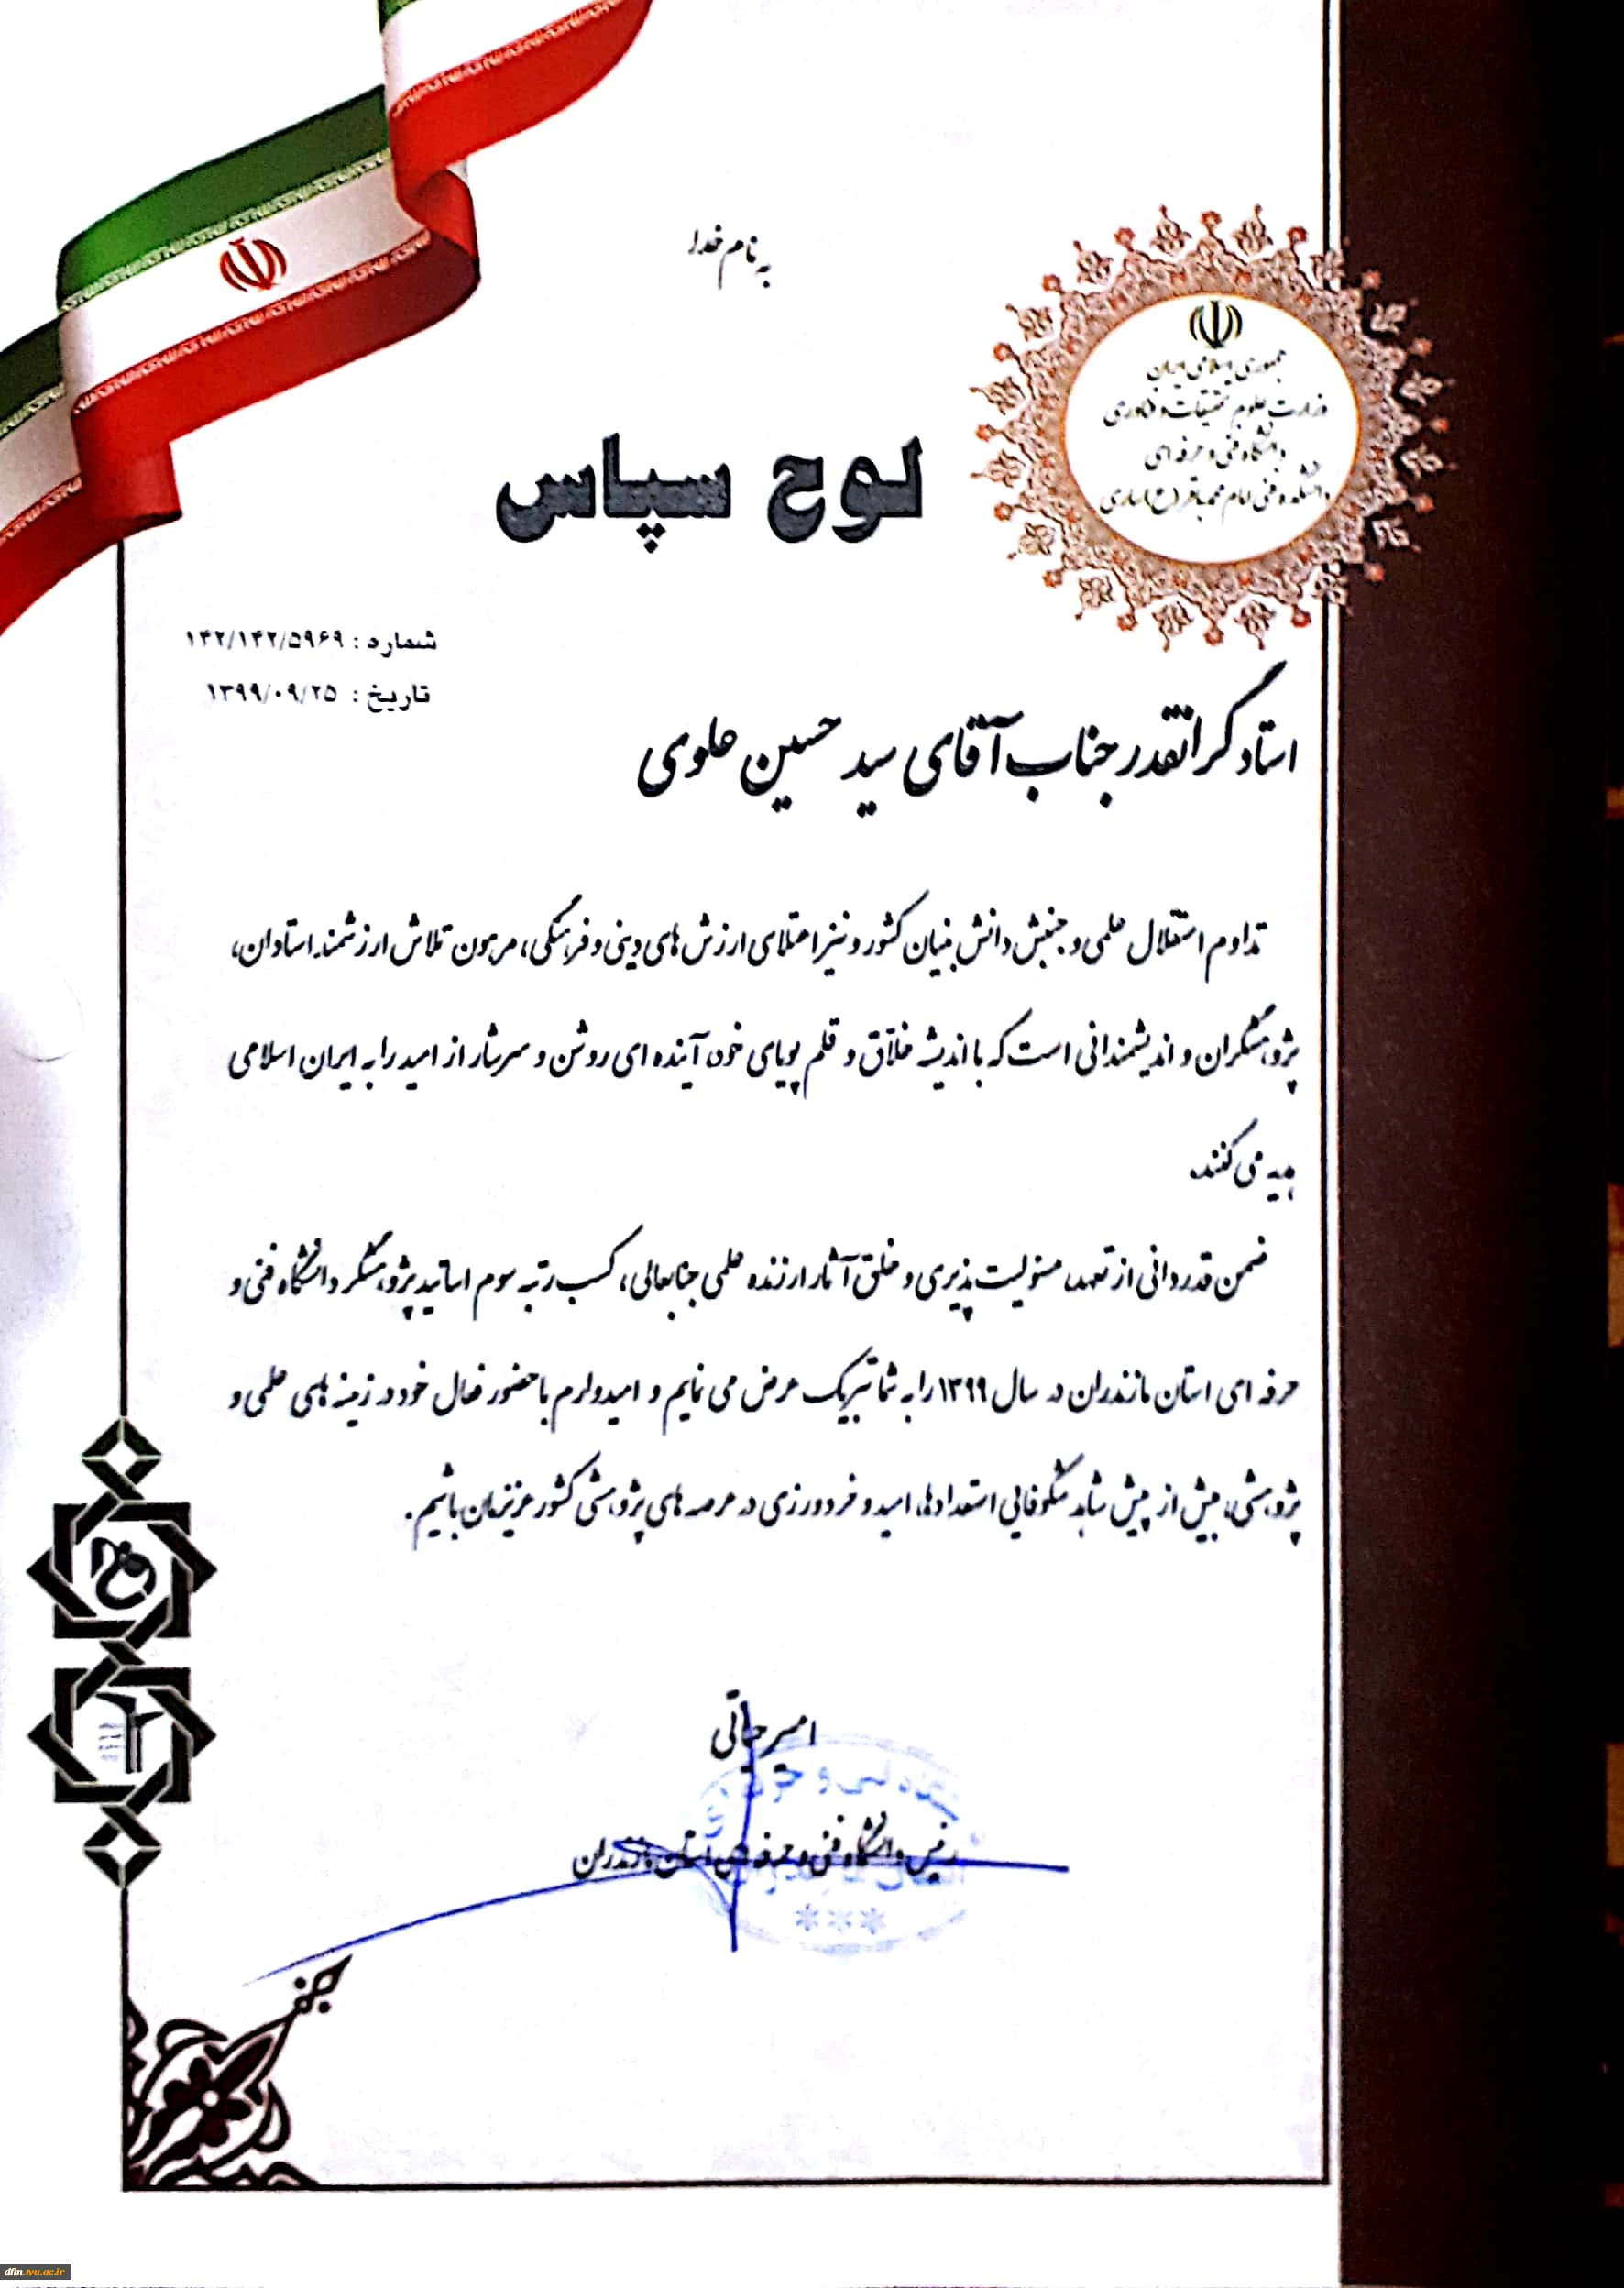 به نام خدا
جمهوری اسلامی ایران
وزارت علوم تحقیقات و فناوری
دانشگاه فنی و حرفه ای
دانشکده فنی امام محمد باقر (ع) ساری
لوح سپاس
شماره : ۱۴۲/۱۴۲/۵۹۶۹
تاریخ : ۱۳۹۹/۰۹/۲۵
استاد گرانقدر جناب آقای سید حسین علوی
تداوم استقلال علمی و جنبش دانش بنیان کشور و نیز اعتلای ارزش های دینی و فرهنگی، مرهون تلاش ارزشمند استادان،
پژوهشگران و اندیشمندانی است که با اندیشه خلاق و قلم پویای خود آینده ای روشن و سرشار از امید را به ایران اسلامی
هدیه می کنند.
ضمن قدردانی از تعهد، مسئولیت پذیری و خلق آثار ارزنده علمی جنابعالی، کسب رتبه سوم اساتید پژوهشگر دانشگاه فنی و
حرفه ای استان مازندران در سال ۱۳۹۹ را به شما تبریک عرض می نمایم و امیدوارم با حضور فعال خود در زمینه های علمی و
پژوهشی، بیش از پیش شاهد شکوفایی استعدادها، امید و خردورزی در عرصه های پژوهشی کشور عزیزمان باشیم.
رئیس دانشگاه فنی و حرفه ای استان مازندران
dfm.tvu.ac.ir